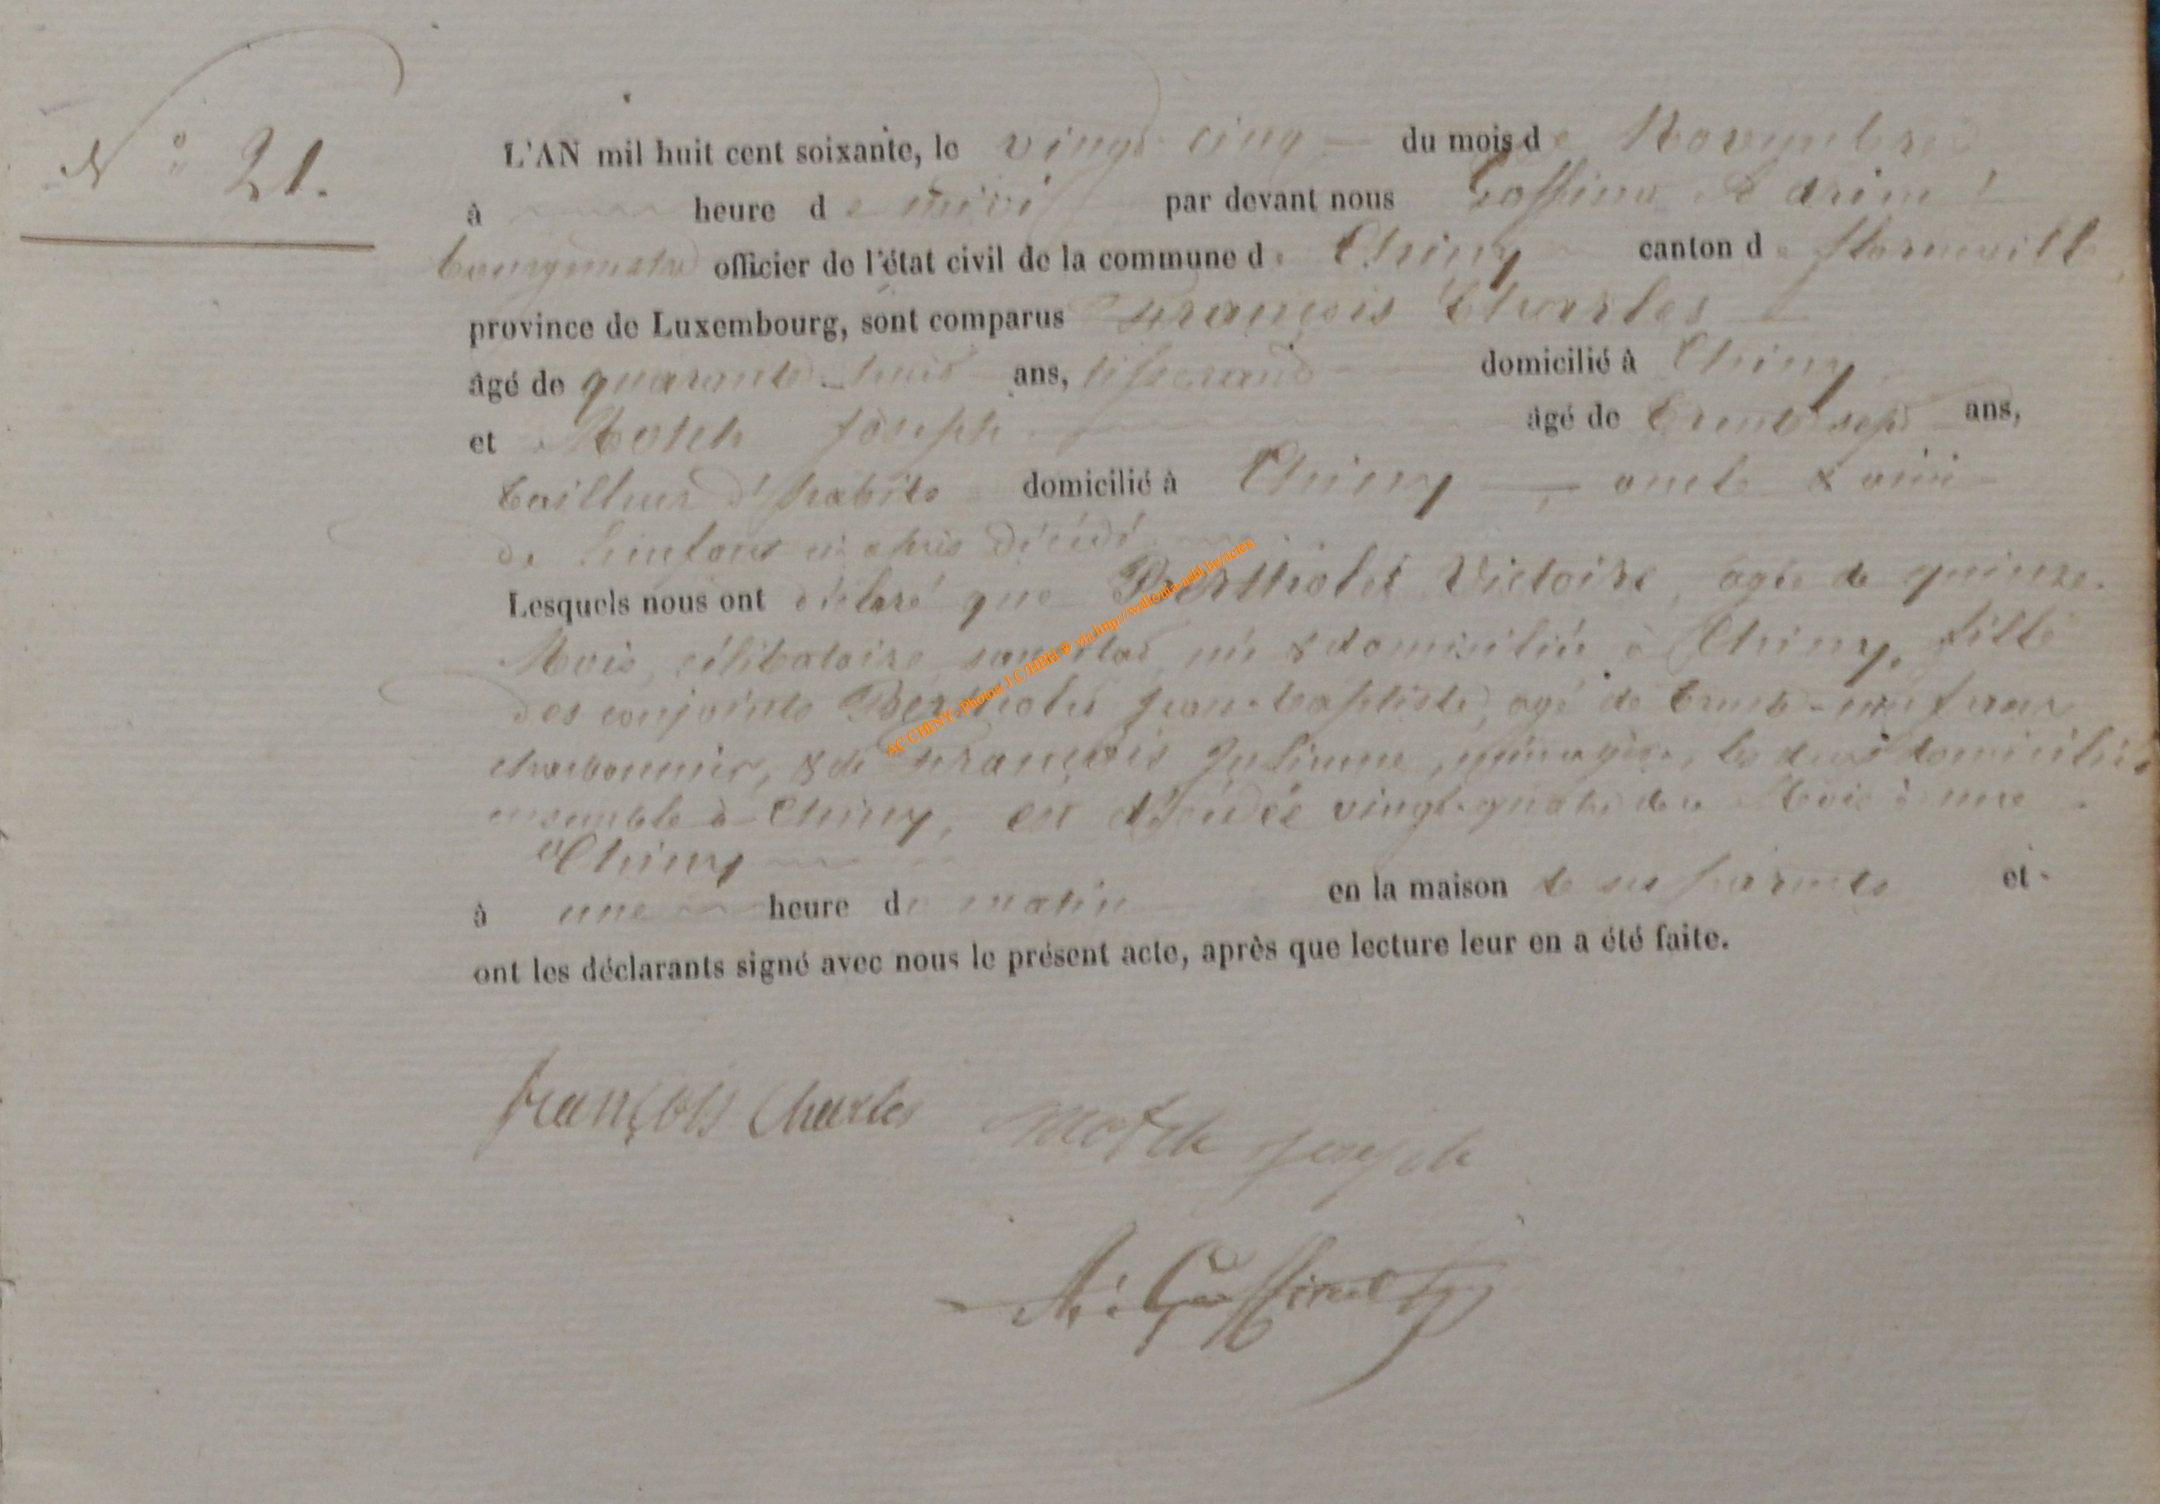 N° 21.
L'AN mil huit cent soixante, le vingt cinq du mois de Novembre
à heure de midi par devant nous Goffinet Adrien
bourgmestre officier de l'état civil de la commune de Chiny canton de Florenville
province de Luxembourg, sont comparus François Charles
âgé de quarante-huit ans, tisserand domicilié à Chiny
et Motch Joseph âgé de trente sept ans,
tailleur d'habits domicilié à Chiny, oncle & ami
de l'enfant ci après décédé
Lesquels nous ont déclaré que Bertholet Victoire, agée de quinze
Mois, célibataire, sans état, née & domiciliée à Chiny, fille
des conjoints Bertholet Jean-baptiste, agé de trente-neuf ans
charbonnier, & de François Julienne, ménagère, les deux domiciliés
ensemble à Chiny, est décédée vingt-quatre de ce Mois à une
Chiny
à une heure du matin en la maison de ses parents et
ont les déclarants signé avec nous le présent acte, après que lecture leur en a été faite.
françois Charles Motch joseph
A. Goffinet
AC CHINY - Photos J.C HBR © via http://wallonia-asbl.be/actes